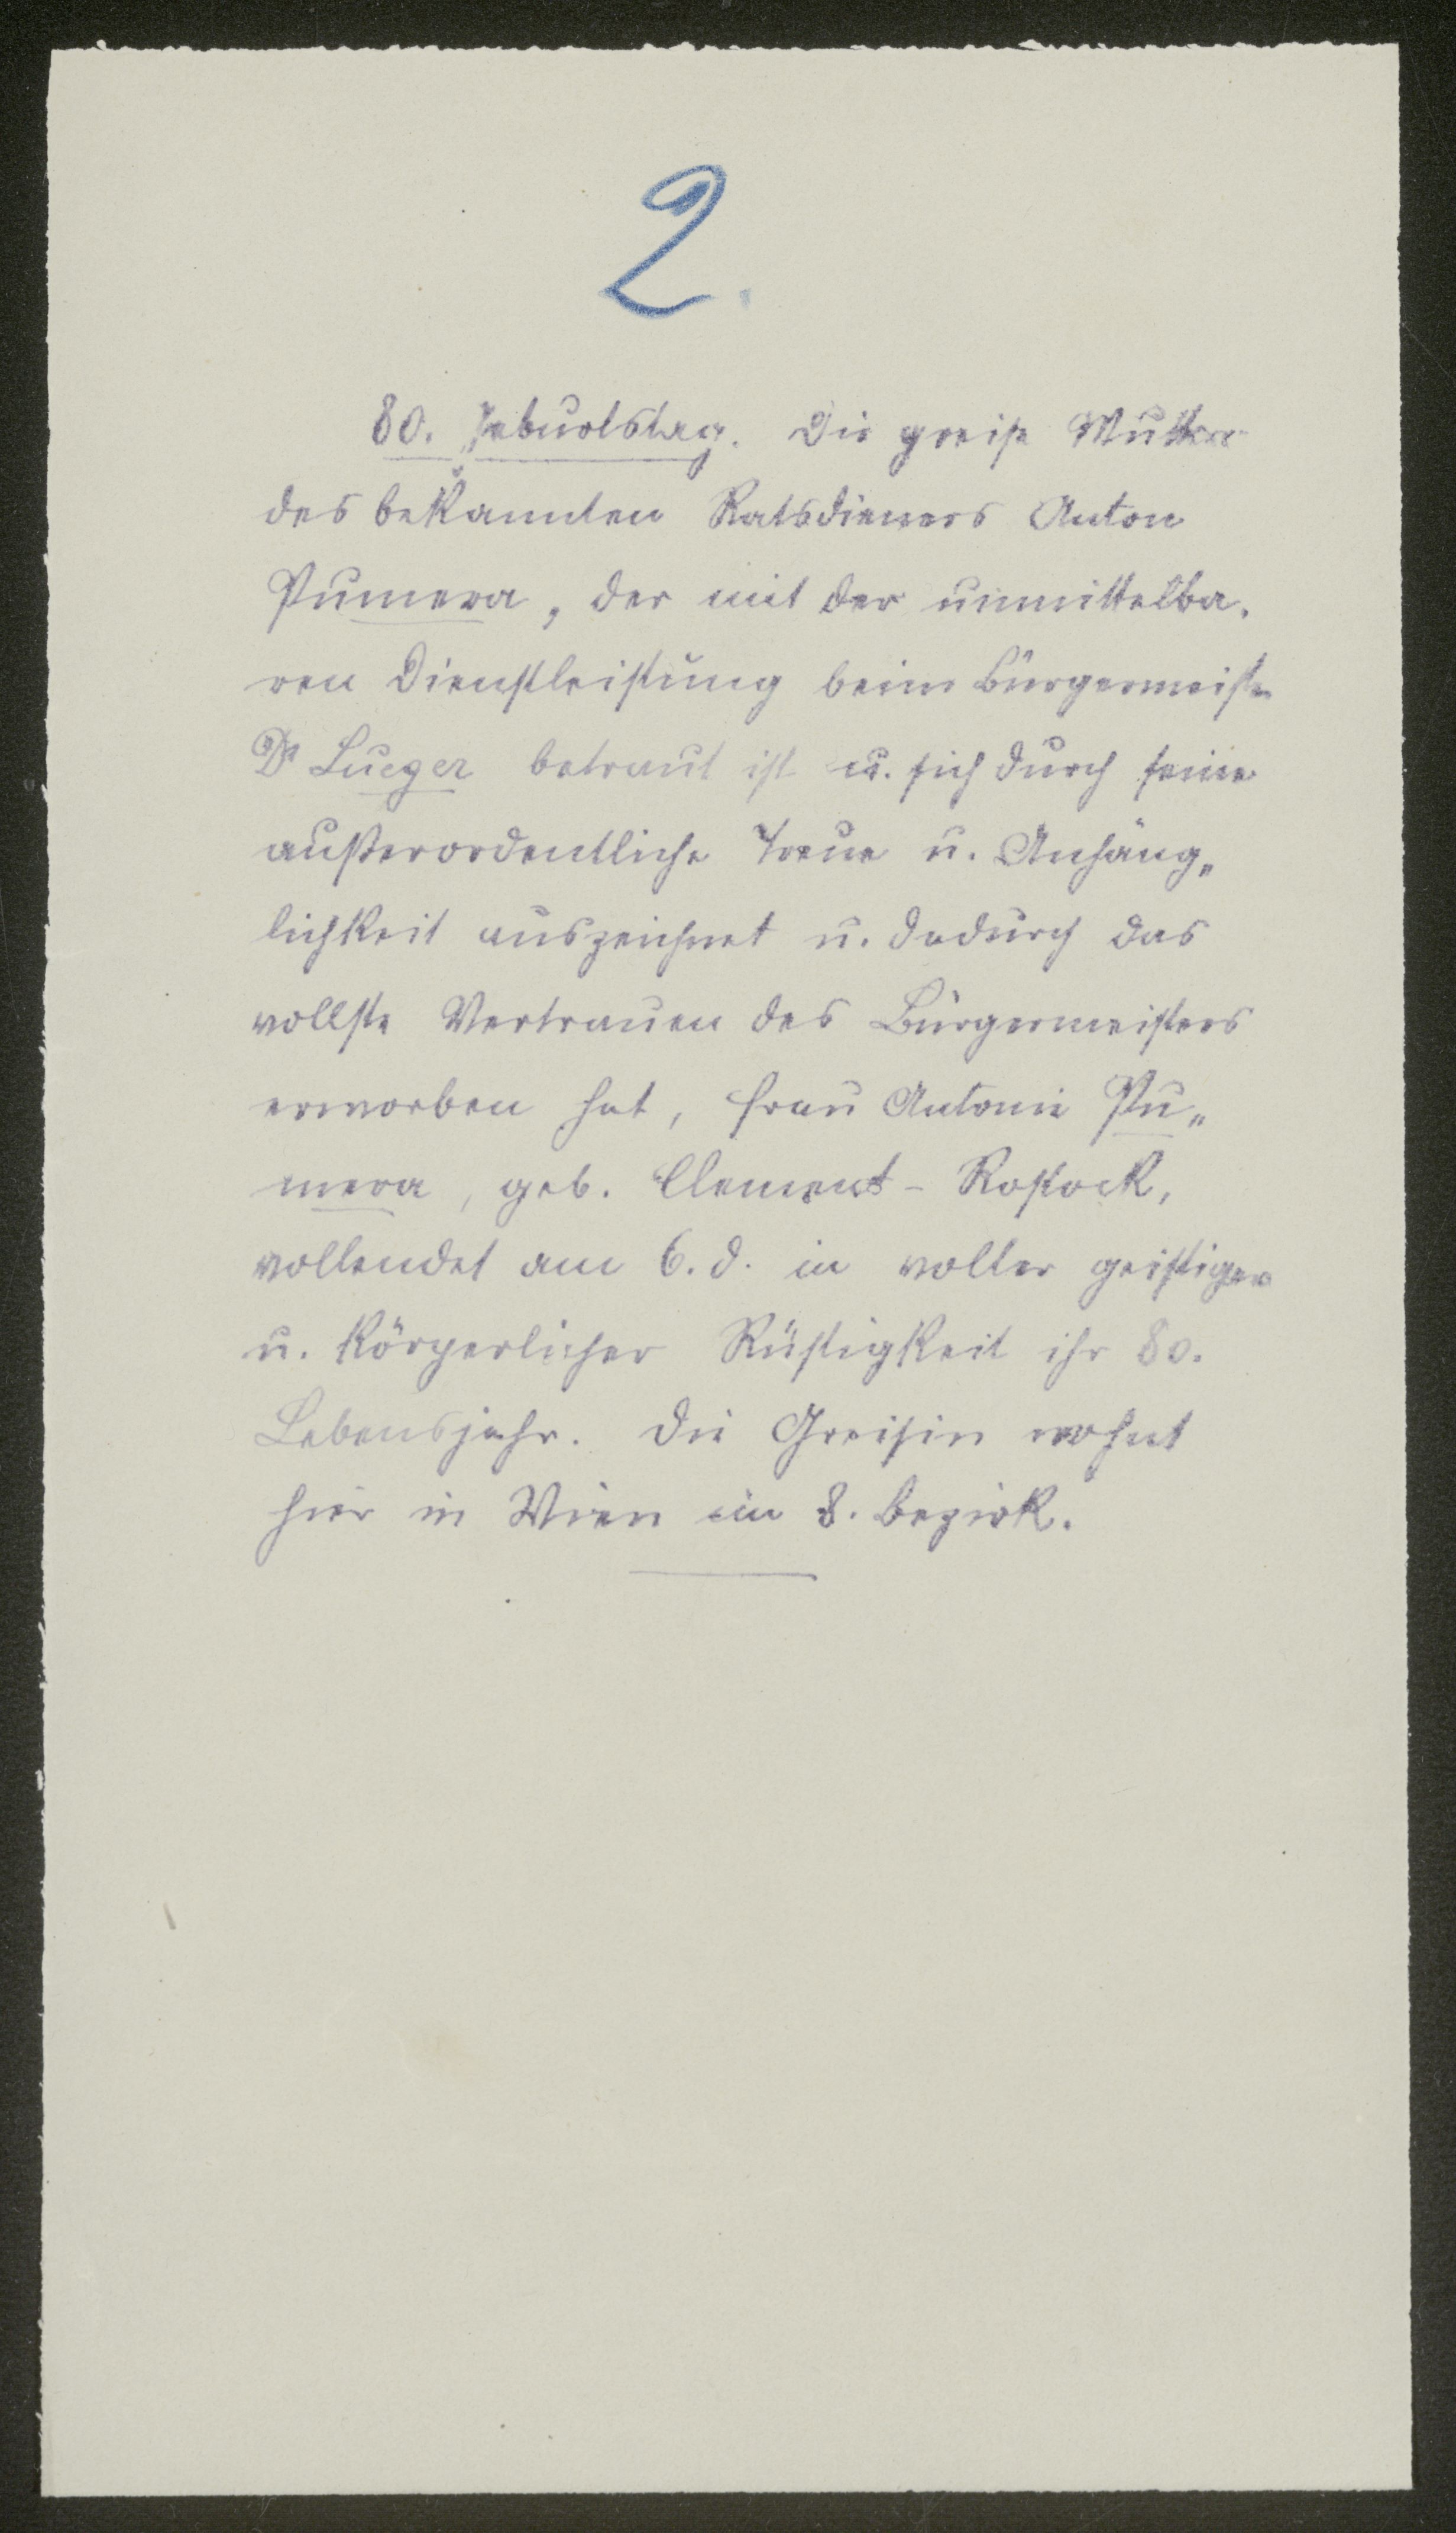 2.
80. Geburtstag. Die greise Mutter
des bekannten Ratsdieners Anton
Pumera, der mit der unmittelba-
ren Dienstleistung beim Bürgermeister
Dr Lueger betraut ist u. sich durch seine
außerordentliche Treue u. Anhäng„
lichkeit auszeichnet u. dadurch das
vollste Vertrauen des Bürgermeisters
erworben hat, Frau Antonie Pu„
mera, geb. Clement - Rostock,
vollendet am 6. d. in voller geistiger
u. körperlicher Rüstigkeit ihr 80.
Lebensjahr. Die Greisin wohnt
hier in Wien im 8. Bezirk.